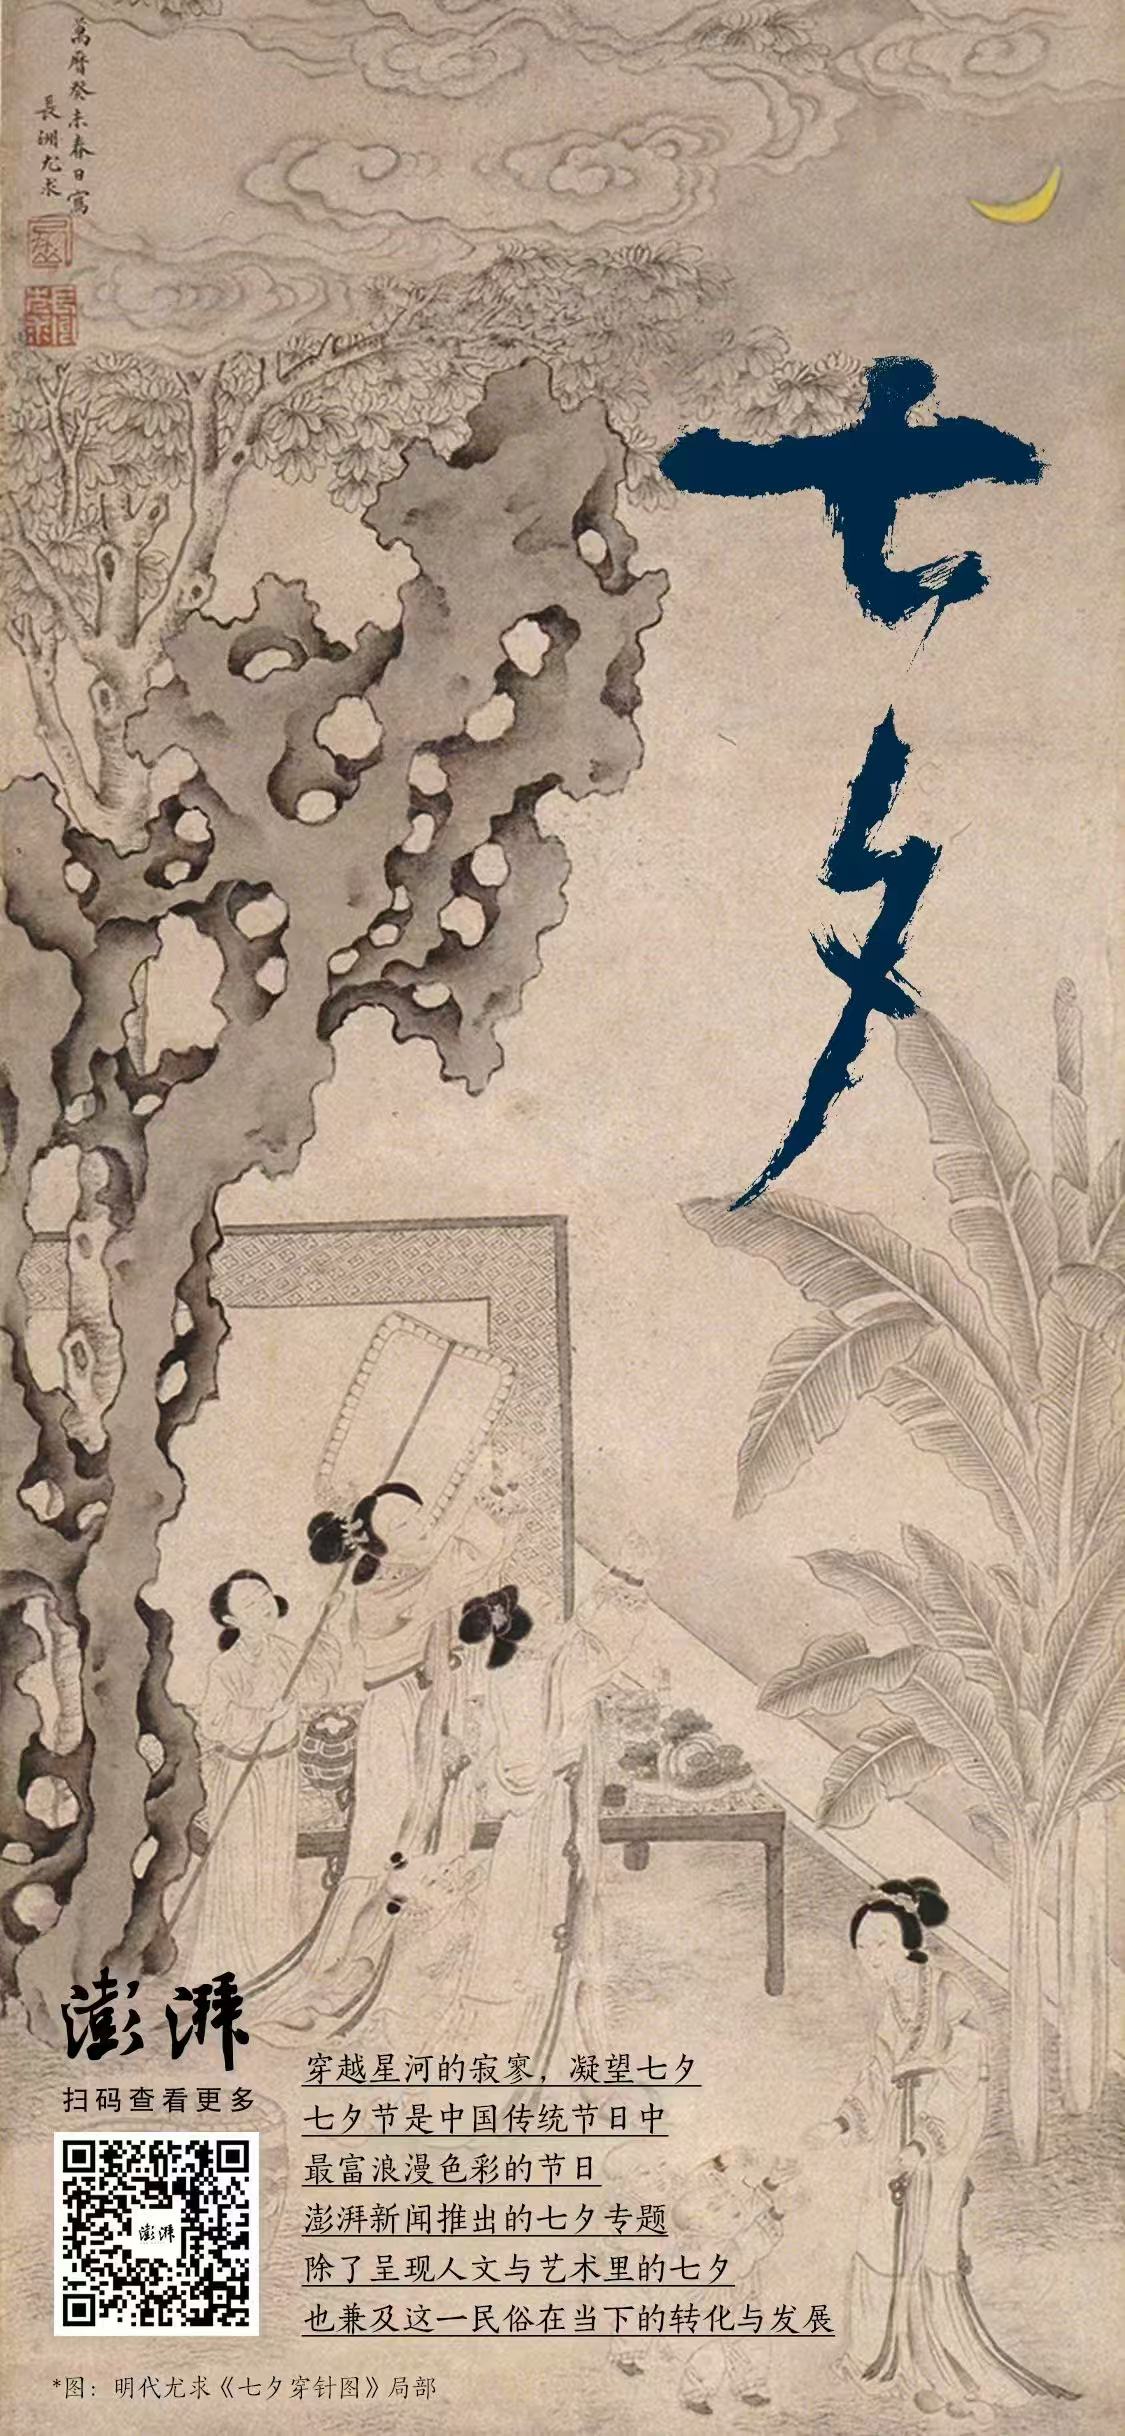 萬曆癸未春日寫
長洲尤求
七夕
澎湃
扫码查看更多
澎湃
穿越星河的寂寥，凝望七夕
七夕节是中国传统节日中
最富浪漫色彩的节日
澎湃新闻推出的七夕专题
除了呈现人文与艺术里的七夕
也兼及这一民俗在当下的转化与发展
*图：明代尤求《七夕穿针图》局部